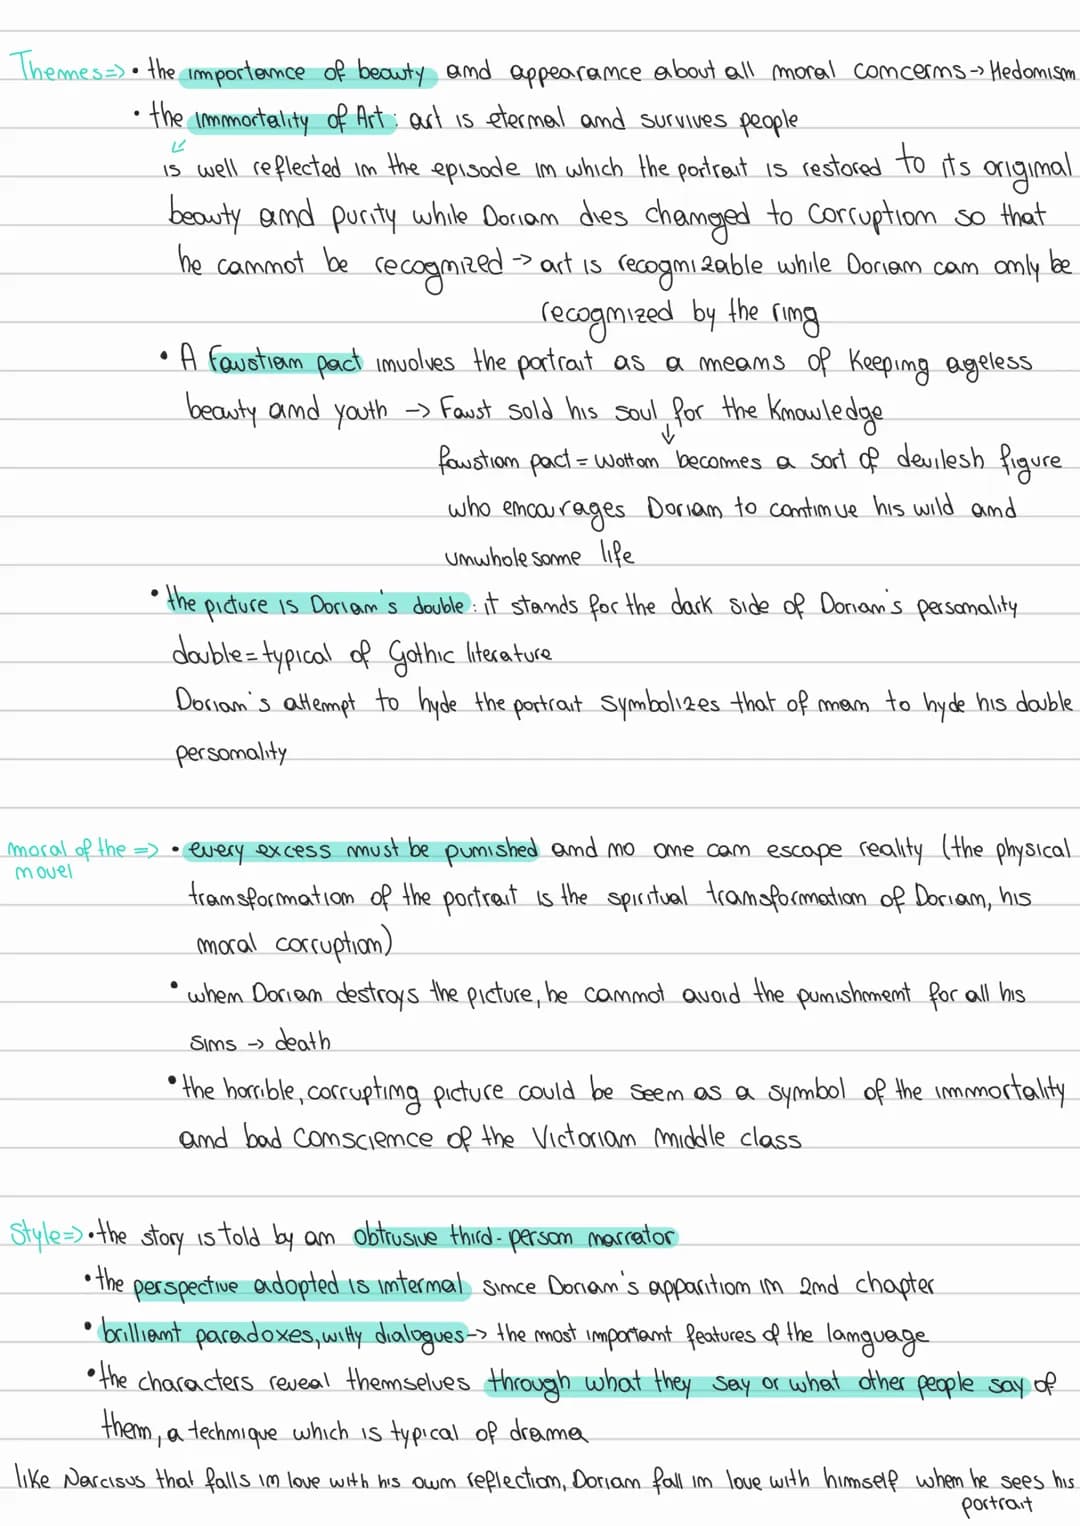 Themes=> • the importance of beauty and appearance about all moral concerns -> Hedonism
• the immortality of Art: art is eternal and survives people
is well reflected in the episode in which the portrait is restored to its original
beauty and purity while Dorian dies changed to corruption so that
he cannot be recognized -> art is recognizable while Dorian can only be
recognized by the ring
• A faustian pact involves the portrait as a means of keeping ageless
beauty and youth -> Faust sold his soul for the knowledge
faustian pact = Wotton becomes a sort of devilesh figure
who encourages Dorian to continue his wild and
unwholesome life
• the picture is Dorian's double: it stands for the dark side of Dorian's personality
double = typical of Gothic literature
Dorian's attempt to hyde the portrait symbolizes that of man to hyde his double
personality
moral of the => • every excess must be punished and no one can escape reality (the physical
novel
transformation of the portrait is the spiritual transformation of Dorian, his
moral corruption)
• when Dorian destroys the picture, he cannot avoid the punishment for all his
sins -> death
• the horrible, corrupting picture could be seen as a symbol of the immortality
and bad conscience of the Victorian middle class
Style=> • the story is told by an obtrusive third-person narrator
• the perspective adopted is internal since Dorian's apparition in 2nd chapter
• brilliant paradoxes, witty dialogues -> the most important features of the language
• the characters reveal themselves through what they say or what other people say of
them, a technique which is typical of drama
like Narcisus that falls in love with his own reflection, Dorian fall in love with himself when he sees his
portrait